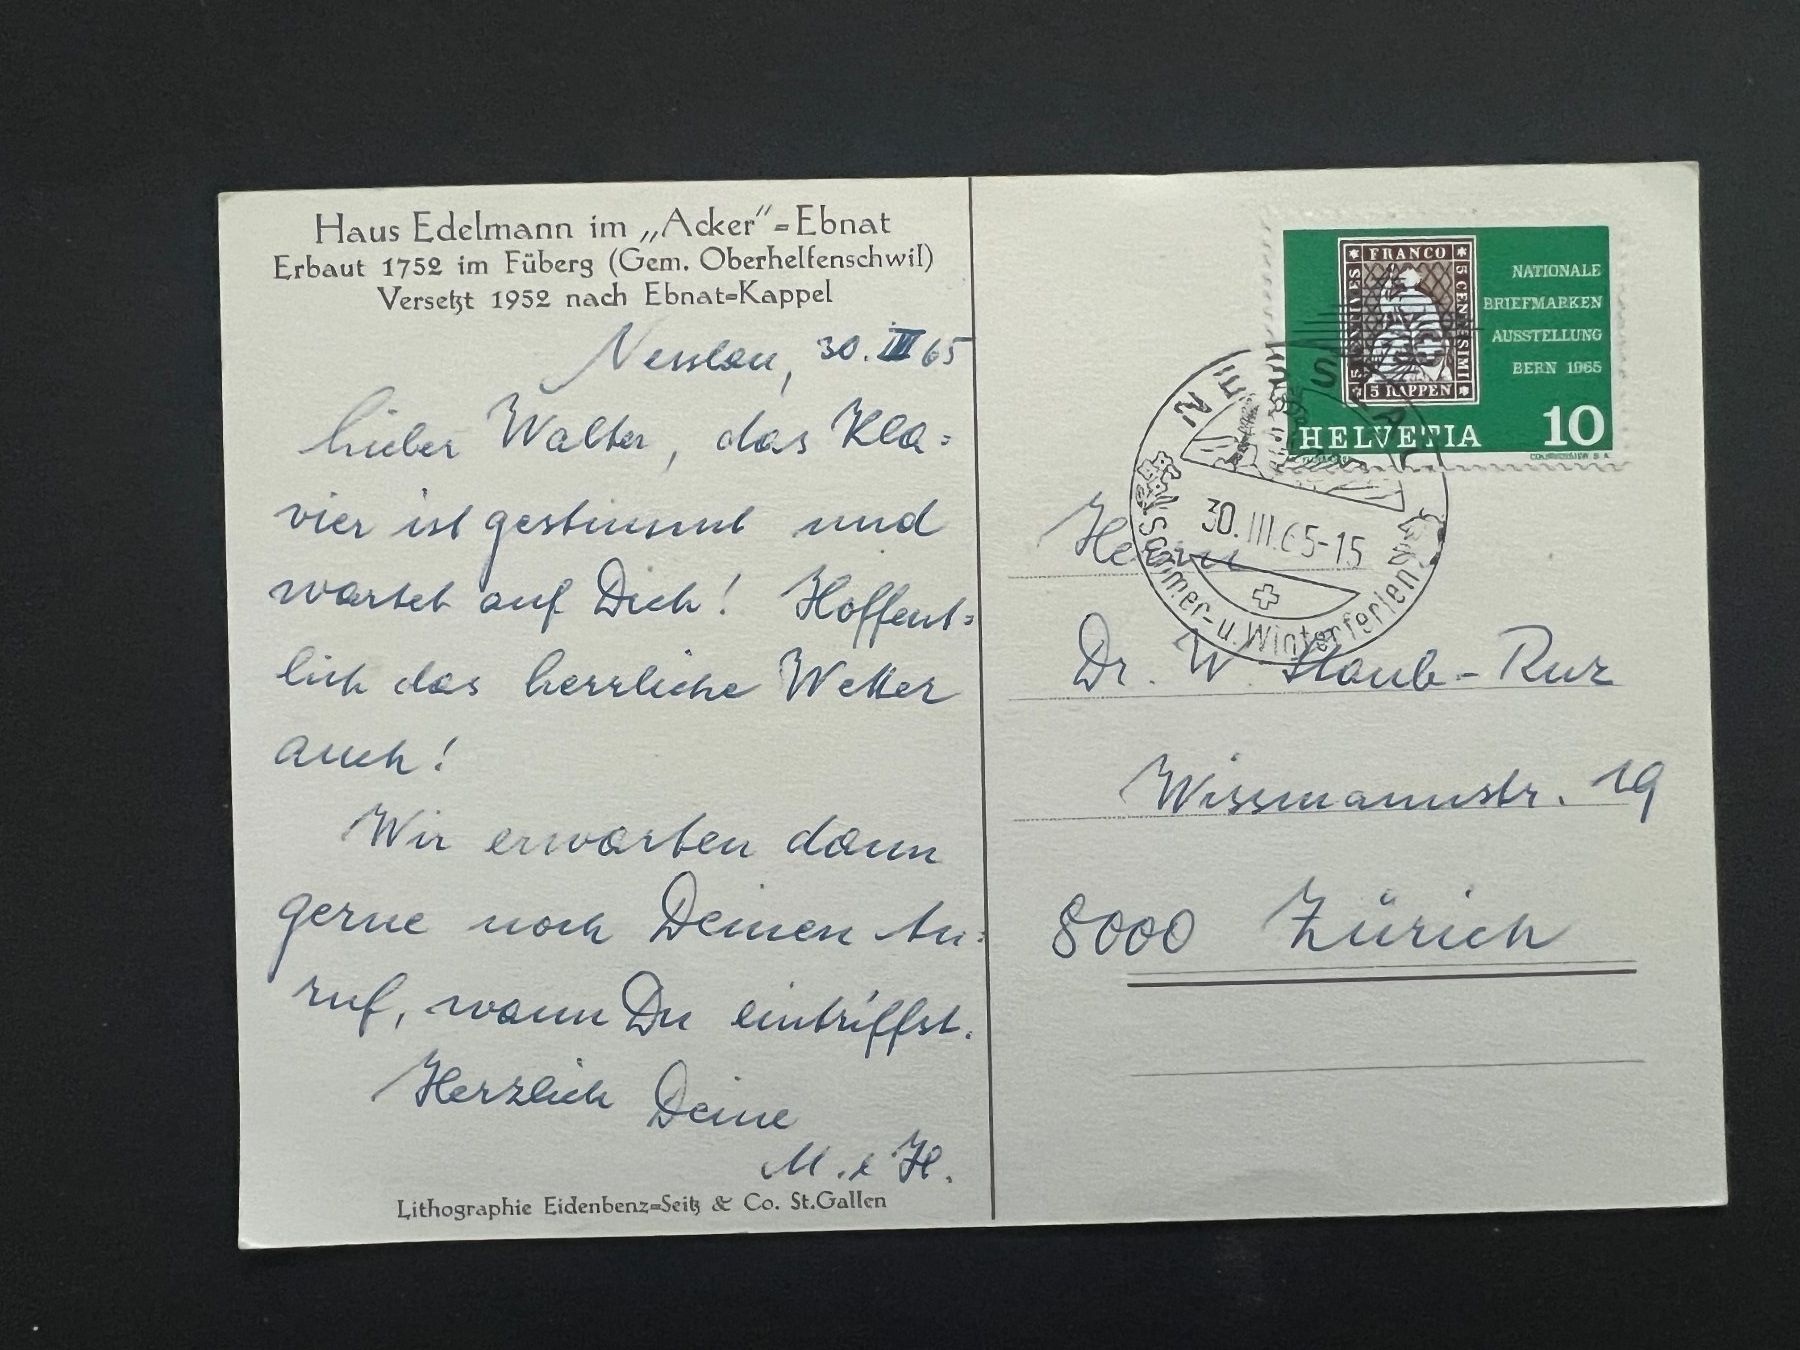 Haus Edelmann im „Acker"=Ebnat
Erbaut 1752 im Füberg (Gem. Oberhelfenschwil)
Versetzt 1952 nach Ebnat=Kappel
Nesslau, 30. III 65
Lieber Walter, das Kla=
vier ist gestimmt und
wartet auf Dich! Hoffent=
lich das herrliche Wetter
auch!
Wir erwarten dann
gerne noch Deinen An=
ruf, wann Du eintriffst.
Herzlich Deine
M. & H.
Lithographie Eidenbenz=Seitz & Co. St.Gallen
FRANCO
5 CENTESIMI
5 RAPPEN
5 CENTIMES
NATIONALE
BRIEFMARKEN
AUSSTELLUNG
BERN 1965
HELVETIA 10
COURVOISIER S A
NESSLAU
30.III.65-15
Sommer- u. Winterferien
Herrn
Dr. W. Staub-Ruz
Wissmannstr. 19
8000 Zürich